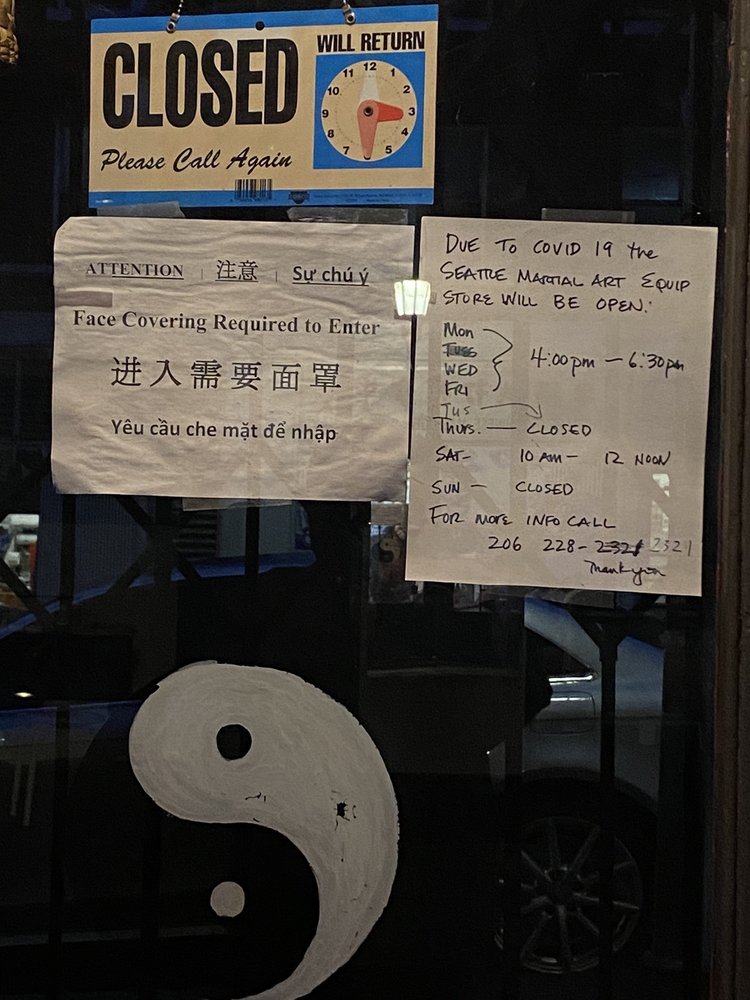 CLOSED
WILL RETURN
11 12 1
10 2
9 3
8 4
7 5
Please Call Again
ATTENTION | 注意 | Sự chú ý
Face Covering Required to Enter
进入需要面罩
Yêu cầu che mặt để nhập
DUE TO COVID 19 the
SEATTLE MARTIAL ART EQUIP
STORE WILL BE OPEN:
Mon
TUES
WED
FRI
4:00pm — 6:30pm
TUS
Thurs. — CLOSED
SAT- 10 AM - 12 NOON
SUN — CLOSED
FOR MORE INFO CALL
206 228-2321 2321
Thank you